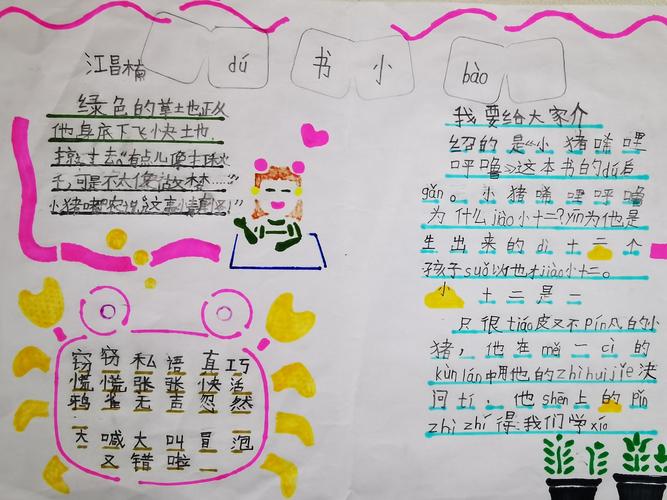 江昌楠
dú 书 小 bào
绿色的草土也正从
他身底下飞快土也
小猪唏
窃窃私语直巧
慌慌张张快活
鸦雀无声忽然
天喊大叫冒泡
又错啦
我要给大家介
绍的是“小猪唏哩
呼噜》这本书的dú后
gǎn。小猪唏哩呼噜
为什么jiào小十二？yīn为他是
生出来的dì十二个
孩子suǒ以也才jiào小十二。
小十二是二
只很tiáo皮又不pín凡的小
猪，他生mǎ一cì的
kùn lán中用他的zhìhuìjiě决
问tí，他shēn上的pǐn
zhì zhí得我们学xí